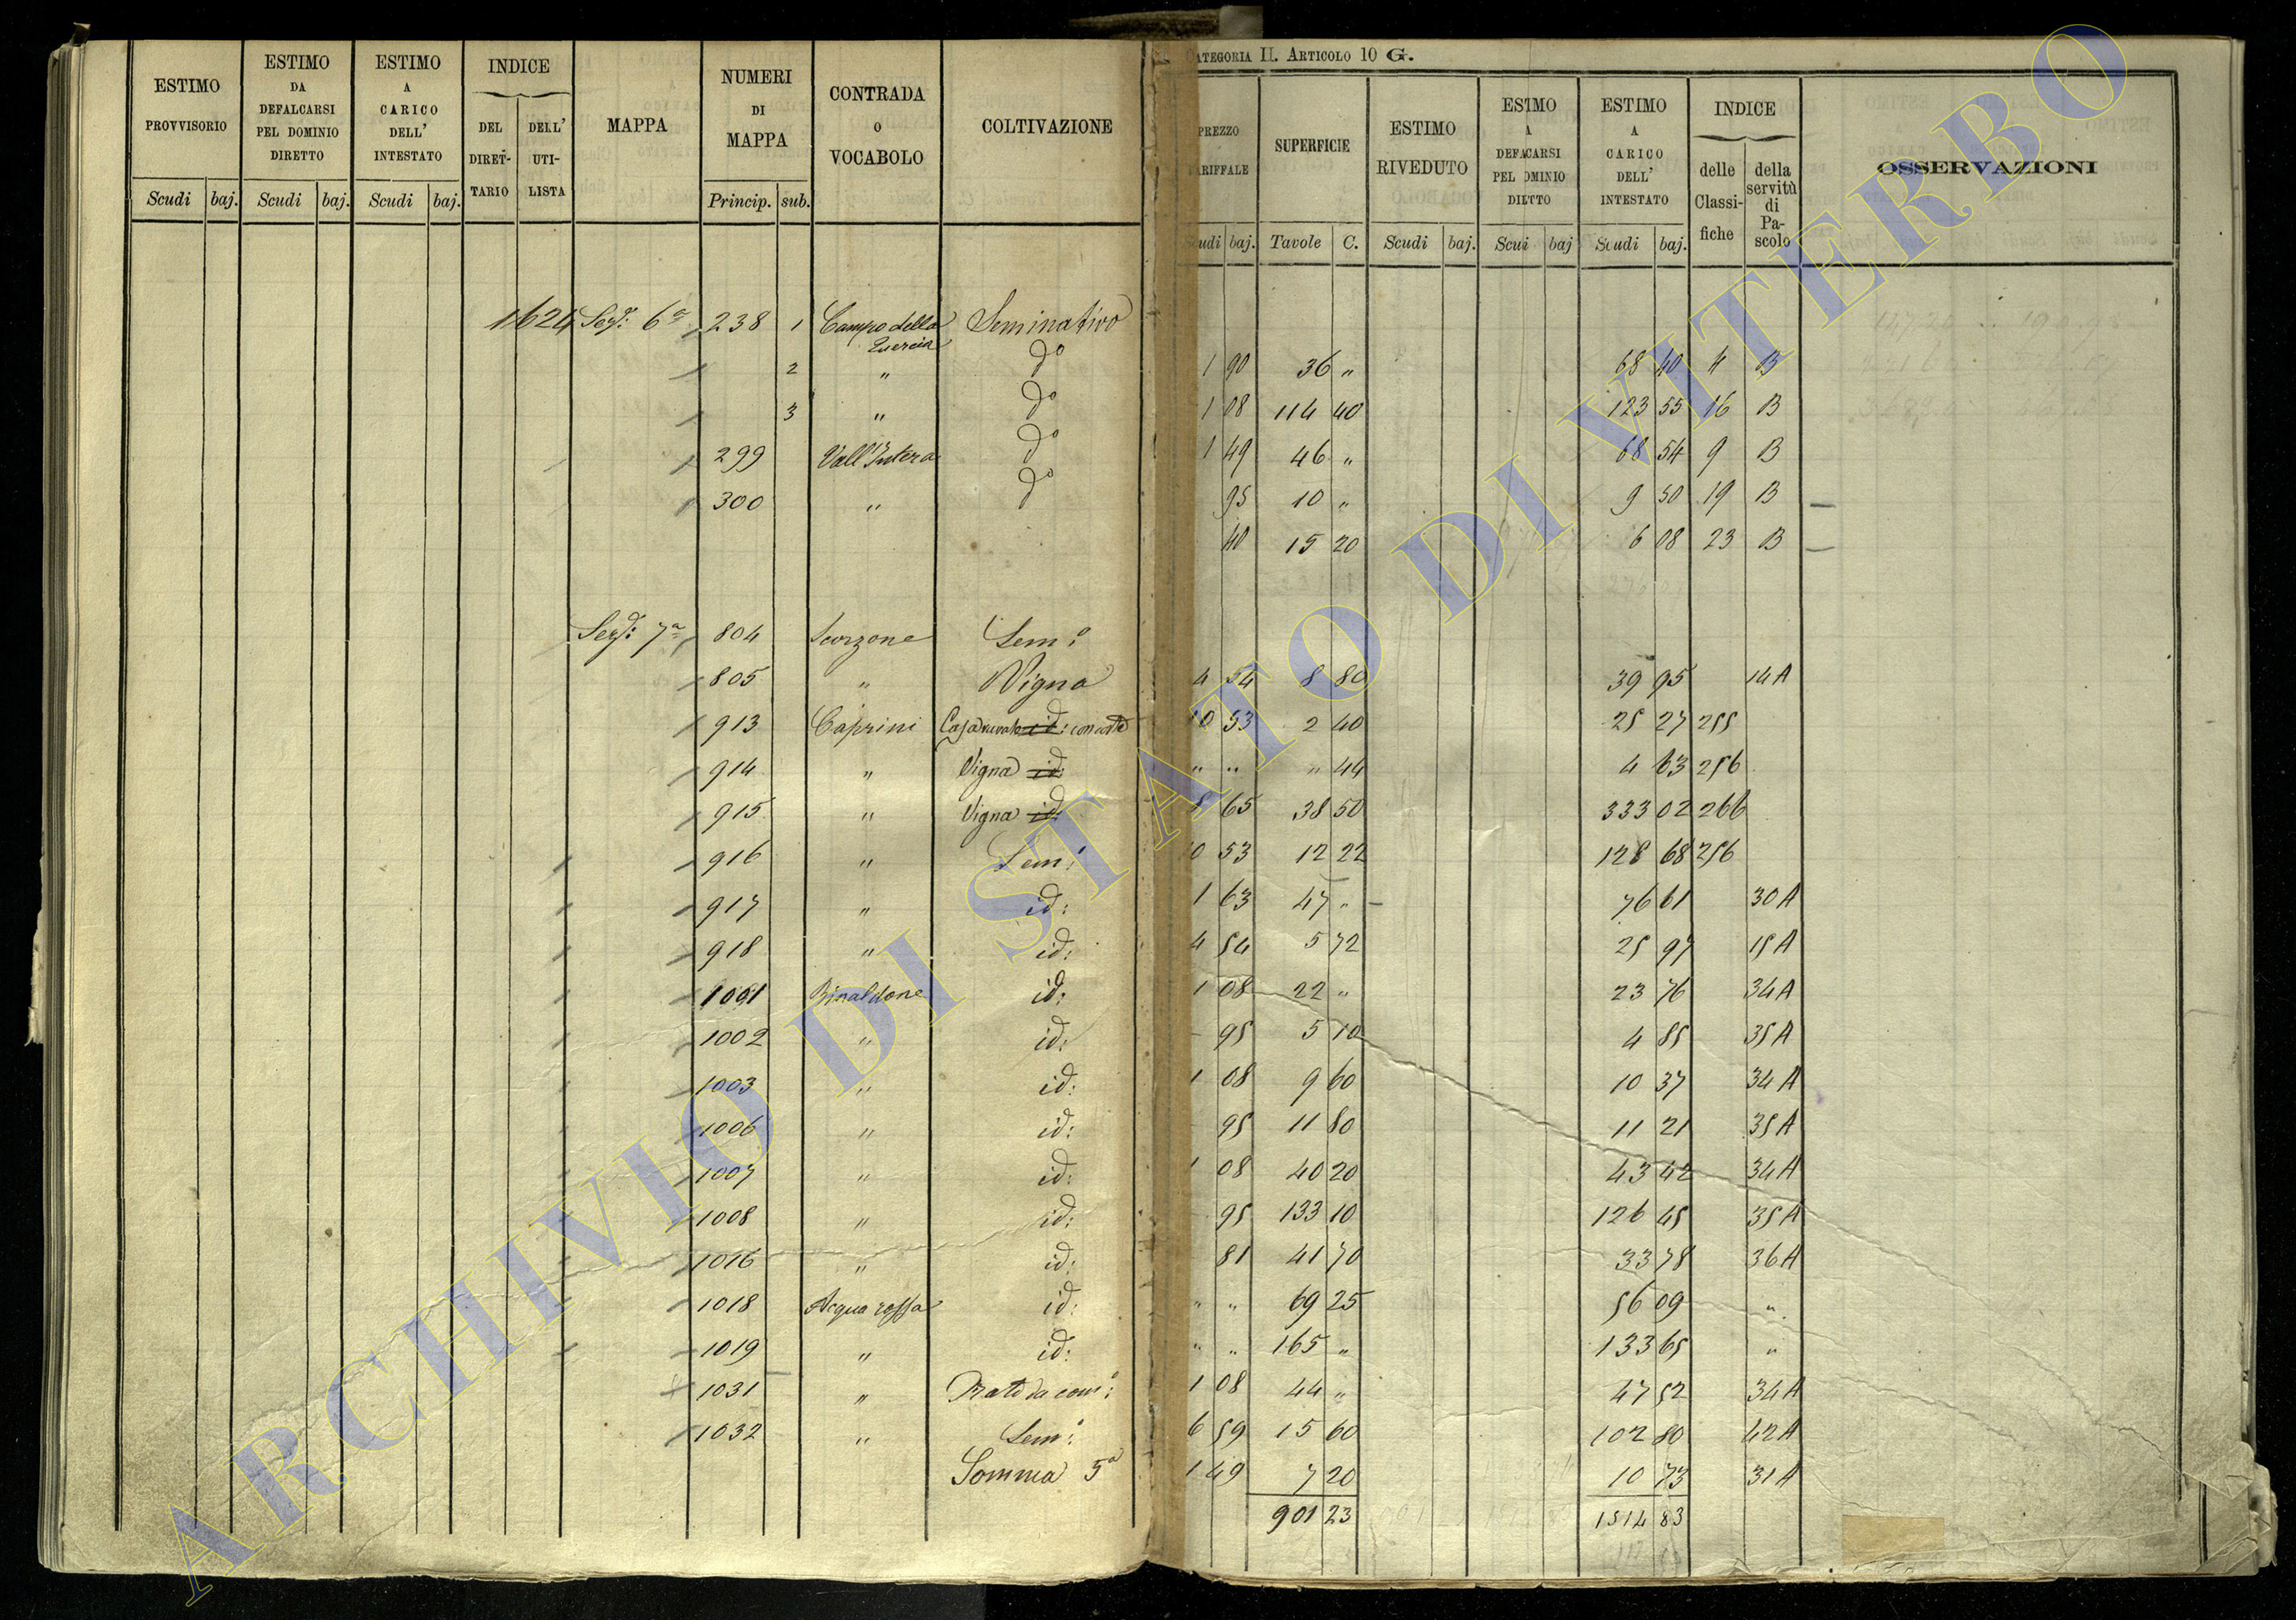 ESTIMO PROVVISORIO
ESTIMO DA DEFALCARSI PEL DOMINIO DIRETTO
ESTIMO A CARICO DELL' INTESTATO
INDICE
DEL DIRETTARIO
DELL' UTILISTA
MAPPA
NUMERI DI MAPPA
CONTRADA O VOCABOLO
COLTIVAZIONE
Scudi baj. Scudi baj. Scudi baj. Princip. sub.
1624 Sez: 6ª 238 1 Campo della Quercia Seminativo
2 " dº
3 " dº
299 Vall'Intera dº
300 " dº
Sez: 7ª 804 Scorzone Sem:º
805 " Vigna
913 Caprini Casa rurale id: con corte
914 " Vigna id:
915 " Vigna id:
916 " Sem:º
917 " id:
918 " id:
1001 Rinaldone id:
1002 " id:
1003 " id:
1006 " id:
1007 " id:
1008 " id:
1016 " id:
1018 Acqua rossa id:
1019 " id:
1031 " Prato da com:º
1032 " Sem:º
Somma 5ª
CATEGORIA II. ARTICOLO 10 G.
PREZZO TARIFFALE
SUPERFICIE
ESTIMO RIVEDUTO
ESTIMO A DEFACARSI PEL DOMINIO DIETTO
ESTIMO A CARICO DELL' INTESTATO
INDICE
delle Classifiche
della servitù di Pascolo
OSSERVAZIONI
Scudi baj. Tavole C. Scudi baj. Scui baj Scudi baj.
1 90 36 " 68 40 4 B
1 08 114 40 123 55 16 B
1 49 46 " 68 54 9 B
95 10 " 9 50 19 B
40 15 20 6 08 23 B
4 54 8 80 39 95 14 A
10 53 2 40 25 27 255
" " " 44 4 63 256
8 65 38 50 333 02 266
10 53 12 22 128 68 256
1 63 47 " 76 61 30 A
4 54 5 72 25 97 15 A
1 08 22 " 23 76 34 A
95 5 10 4 85 35 A
1 08 9 60 10 37 34 A
95 11 80 11 21 35 A
1 08 40 20 43 42 34 A
95 133 10 126 45 35 A
81 41 70 33 78 36 A
" " 69 25 56 09 "
" " 165 " 133 65 "
1 08 44 " 47 52 34 A
6 59 15 60 102 80 42 A
1 49 7 20 10 73 31 A
901 23 1514 83
ARCHIVIO DI STATO DI VITERBO